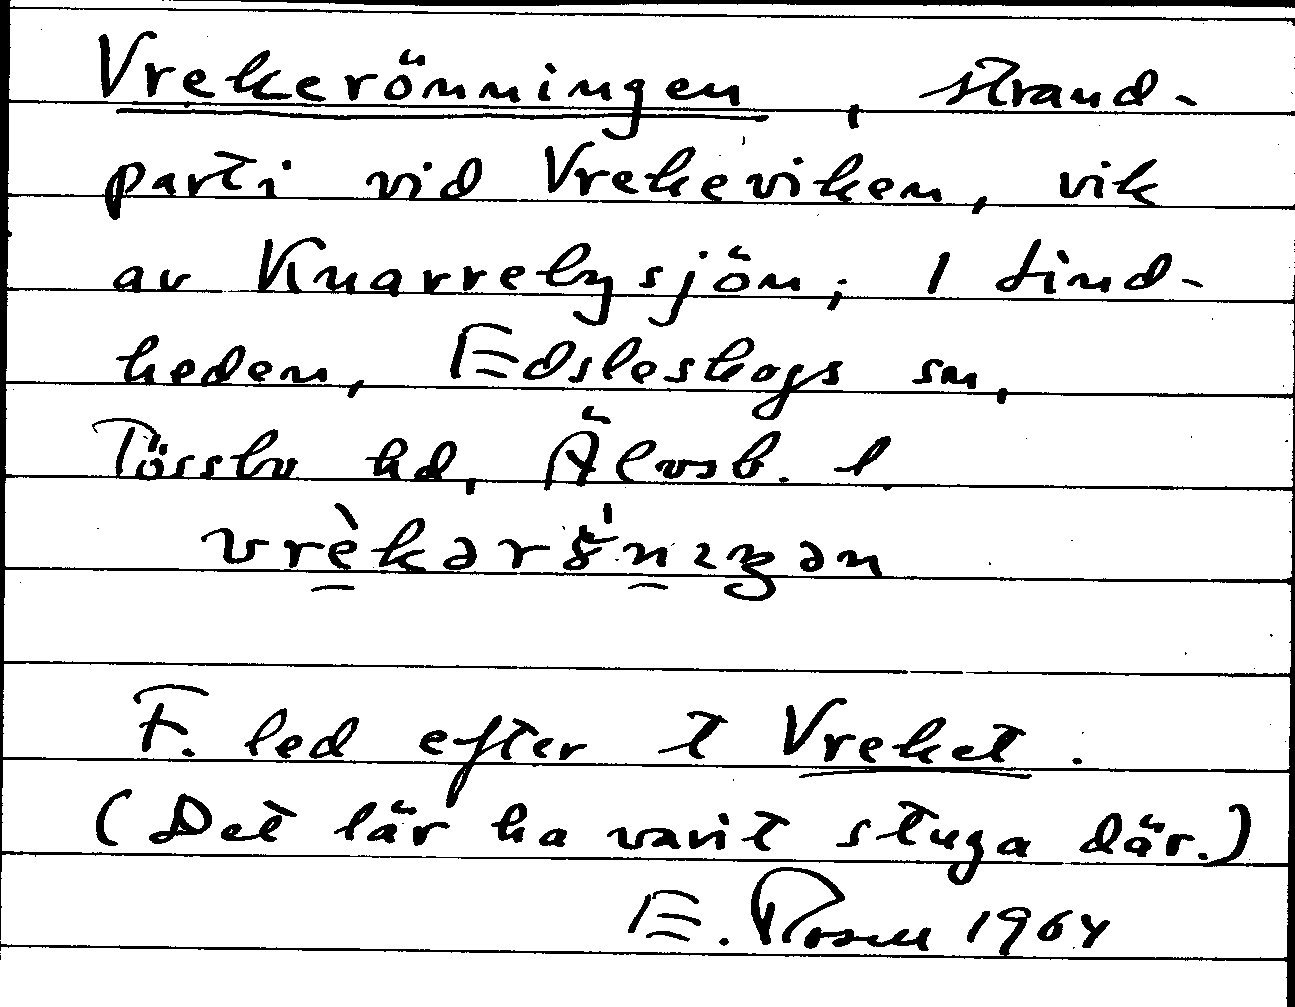 Vrekerönningen, strand-
parti vid Vrekeviken, vik
av Knarrebysjön, 1 Lind-
heden, Edsleskogs sn,
Tössbo hd, Älvsb. l.
F. led efter t Vreket.
(Det lär ha varit stuga där.)
E. Rosell 1964